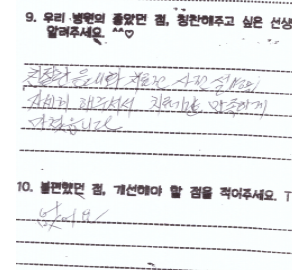 9. 우리 병원의 좋았던 점, 칭찬해주고 싶은 선상
알려주세요. ^^♡
친절한 응대와 치료전 사진 설명이
자세히 해주셔서 치료가 만족하게
마쳤습니다
10. 불편했던 점, 개선해야 할 점을 적어주세요. T
없어요